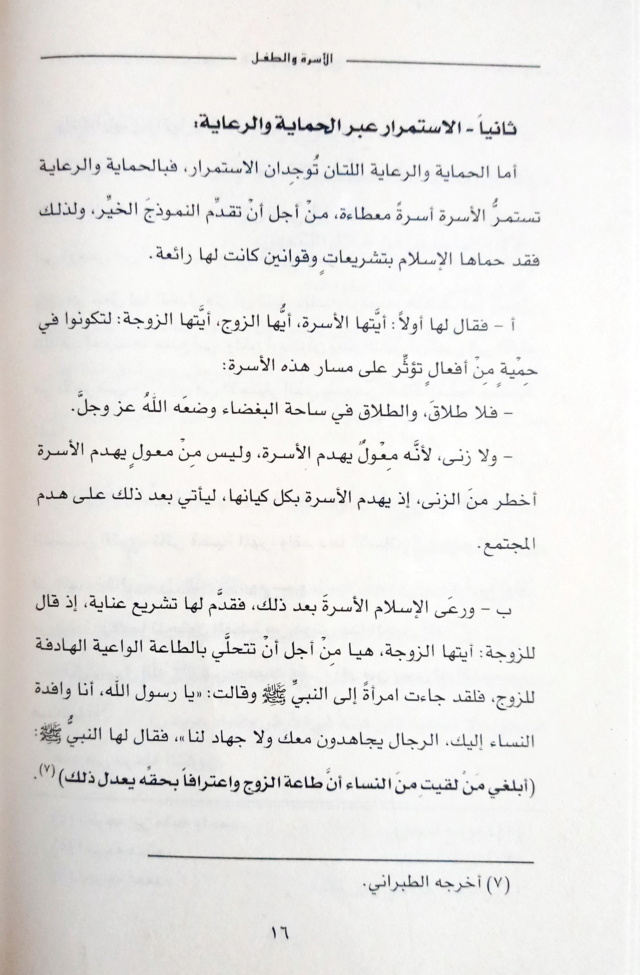 الأسرة والطفل
ثانياً - الاستمرار عبر الحماية والرعاية:
أما الحماية والرعاية اللتان تُوجِدان الاستمرار، فبالحماية والرعاية
تستمرُّ الأسرة أسرةً معطاءة، منْ أجل أنْ تقدِّم النموذجَ الخيِّر، ولذلك
فقد حماها الإسلام بتشريعاتٍ وقوانين كانت لها رائعة.
أ - فقال لها أولاً: أيَّتها الأسرة، أيُّها الزوج، أيَّتها الزوجة: لتكونوا في
حِمْيةٍ مِنْ أفعالٍ تؤثِّر على مسار هذه الأسرة:
- فلا طلاقَ، والطلاق في ساحة البغضاء وضعَه اللهُ عز وجلَّ.
- ولا زنى، لأنَّه مِعْولٌ يهدم الأسرة، وليس مِنْ معولٍ يهدم الأسرة
أخطر منَ الزنى، إذ يهدم الأسرة بكل كيانها، ليأتي بعد ذلك على هدم
المجتمع.
ب - ورعَى الإسلام الأسرةَ بعد ذلك، فقدَّم لها تشريع عناية، إذ قال
للزوجة: أيتها الزوجة، هيا مِنْ أجل أنْ تتحلَّي بالطاعة الواعية الهادفة
للزوج، فلقد جاءت امرأةٌ إلى النبيِّ ﷺ وقالت: «يا رسول الله، أنا وافدة
النساء إليك، الرجال يجاهدون معك ولا جهاد لنا»، فقال لها النبيُّ ﷺ:
(أبلغي مَنْ لقيتِ منَ النساء أنَّ طاعة الزوج واعترافاً بحقِّه يعدل ذلك)(٧).
(٧) أخرجه الطبراني.
١٦